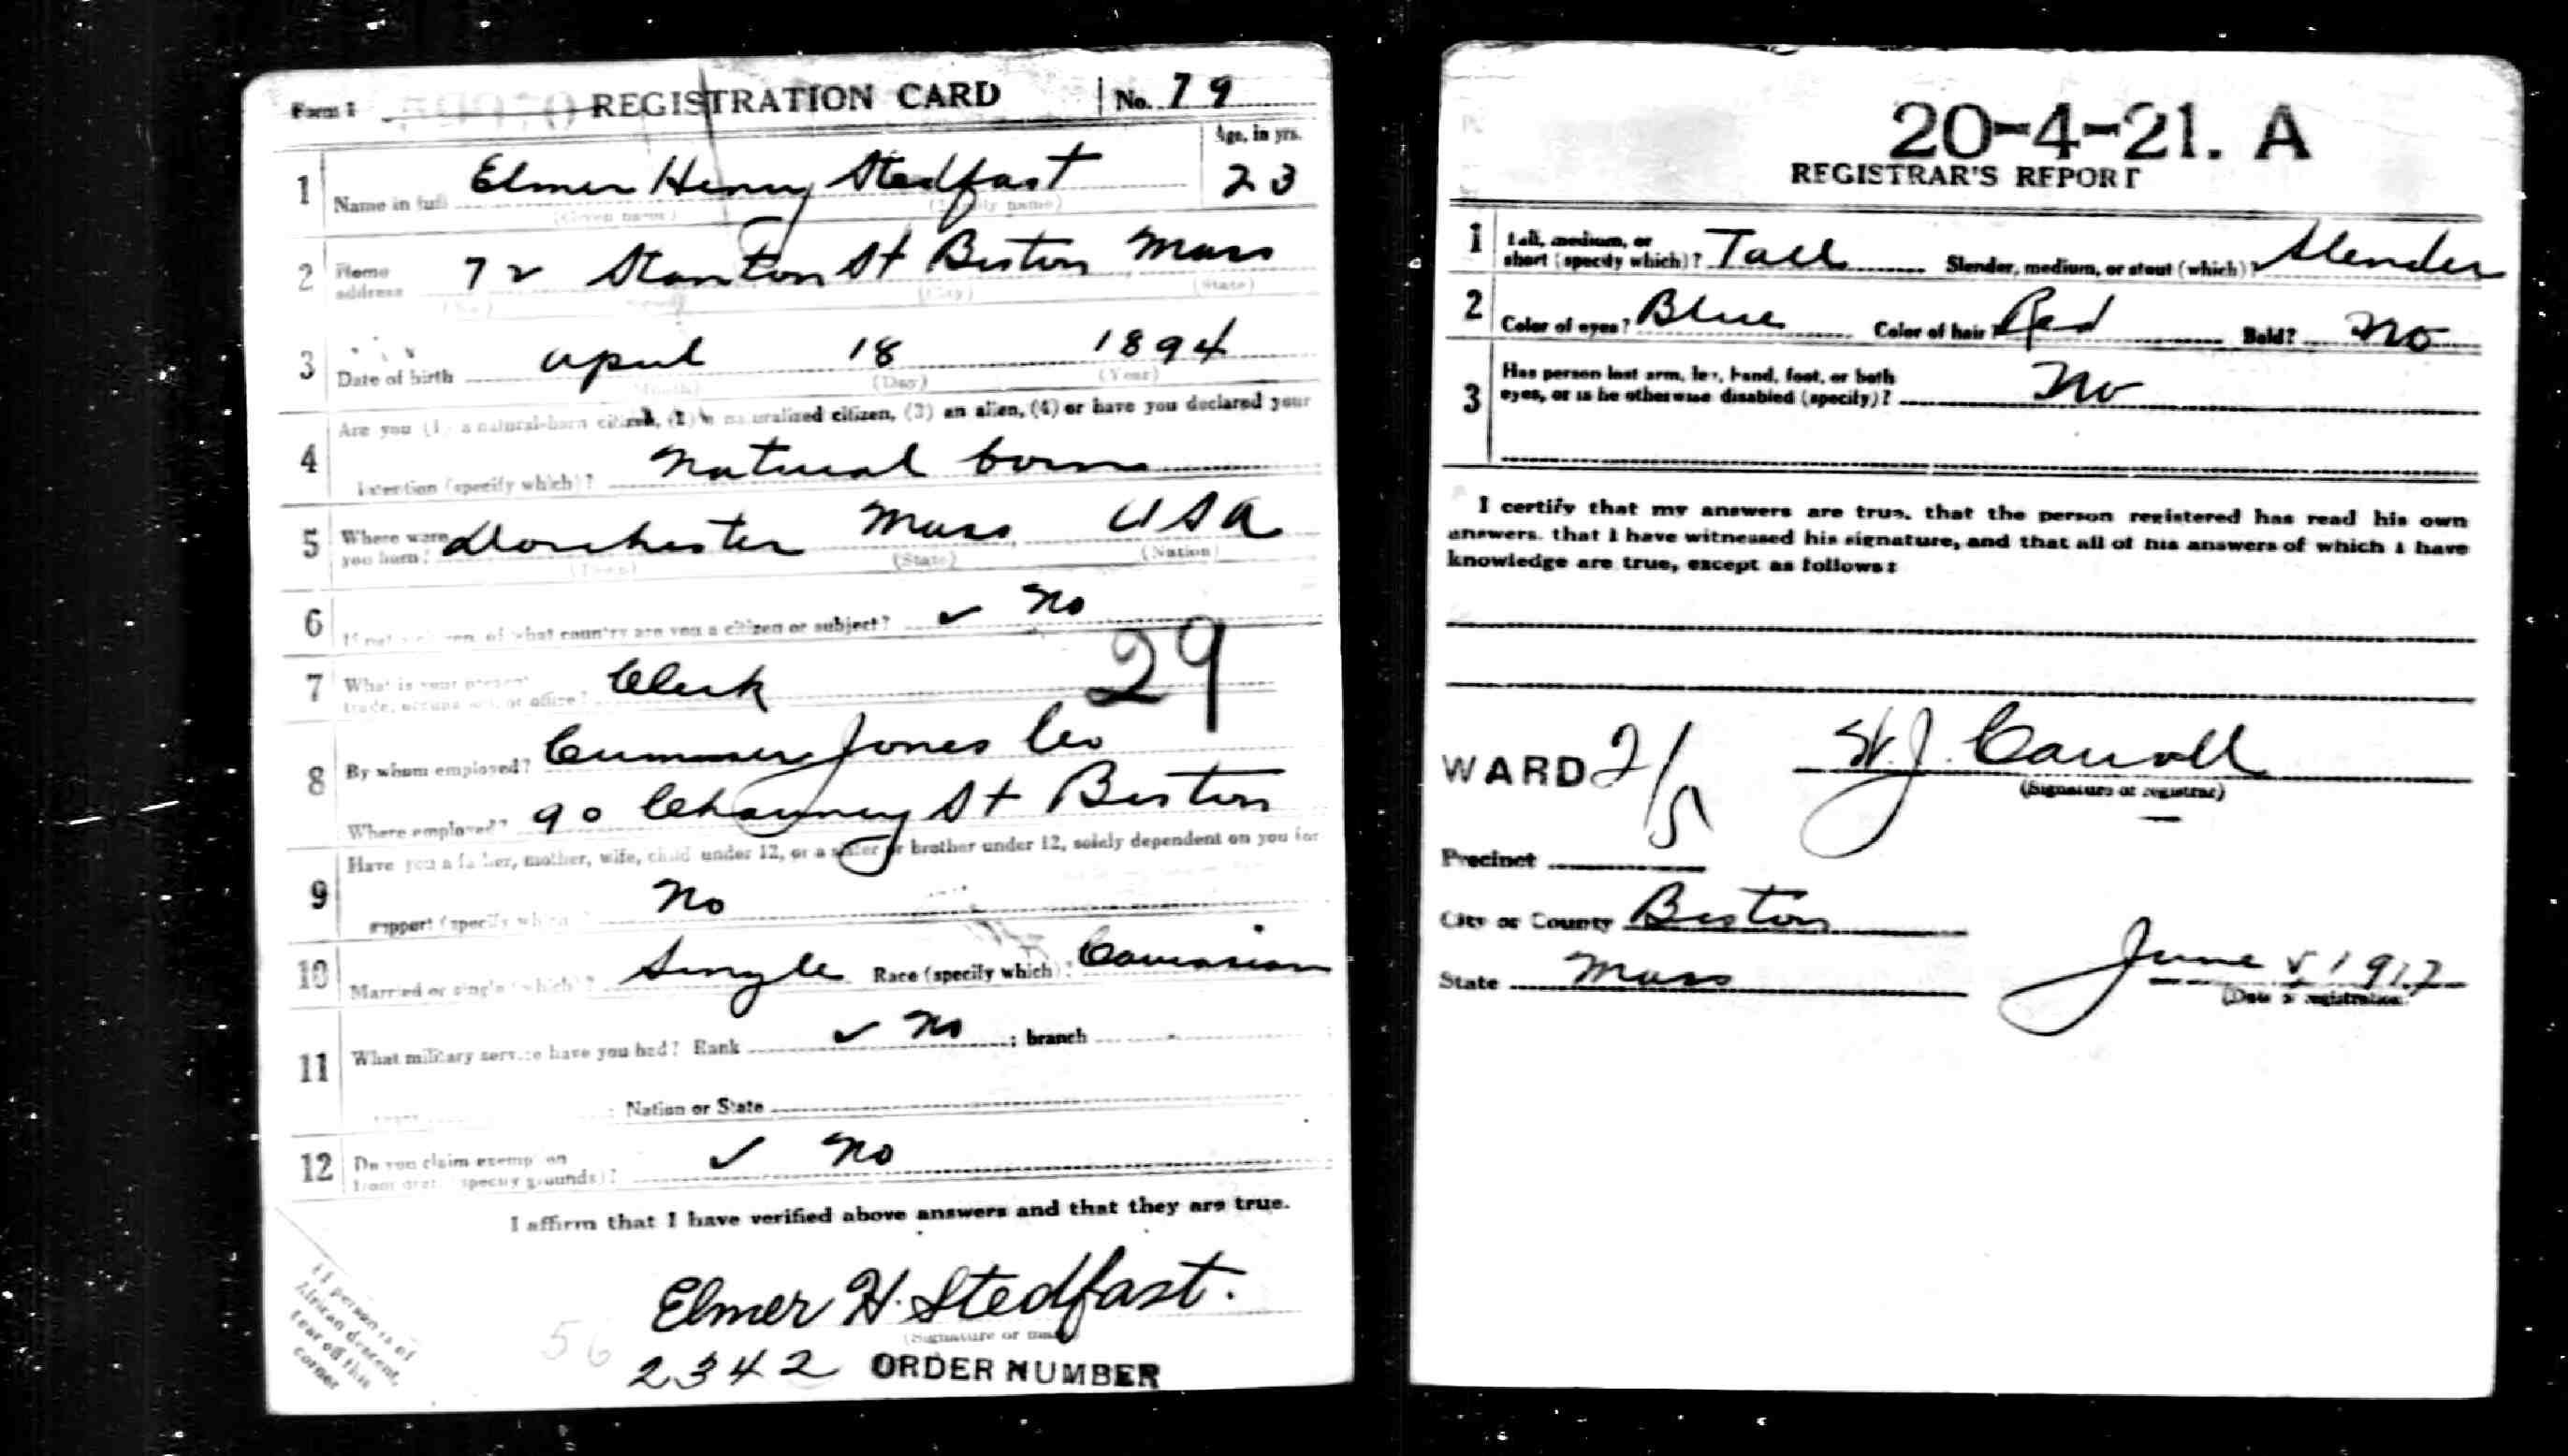 Form 1 REGISTRATION CARD No. 79
Age, in yrs.
1 Name in full Elmer Henry Stedfast 23
(Given name) (Family name)
2 Home address 72 Stanton St Boston Mass
(No.) (City) (State)
3 Date of birth April 18 1894
(Month) (Day) (Year)
Are you (1) a natural-born citizen, (2) a naturalized citizen, (3) an alien, (4) or have you declared your
4 intention (specify which)? Natural born
5 Where were you born? Dorchester Mass USA
(Town) (State) (Nation)
6 If not a citizen, of what country are you a citizen or subject? ✓ No
29
7 What is your present trade, occupation, or office? Clerk
8 By whom employed? Jones Co
Where employed? 90 Chauncy St Boston
Have you a father, mother, wife, child under 12, or a sister or brother under 12, solely dependent on you for
9 support (specify which)? No
10 Married or single (which)? Single Race (specify which)? Caucasian
11 What military service have you had? Rank ✓ No ; branch
; Nation or State
12 Do you claim exemption from draft (specify grounds)? ✓ No
I affirm that I have verified above answers and that they are true.
Elmer H. Stedfast.
(Signature or mark)
56
2342 ORDER NUMBER
If person is of
African descent,
tear off this
corner
20-4-21. A
REGISTRAR'S REPORT
1 Tall, medium, or short (specify which)? Tall Slender, medium, or stout (which)? Slender
2 Color of eyes? Blue Color of hair? Red Bald? No
3 Has person lost arm, leg, hand, foot, or both
eyes, or is he otherwise disabled (specify)? No
I certify that my answers are true, that the person registered has read his own
answers, that I have witnessed his signature, and that all of his answers of which I have
knowledge are true, except as follows:
WARD 21/5 W. J. Carroll
(Signature of registrar)
Precinct
City or County Boston
State Mass June 5 1917
(Date of registration)